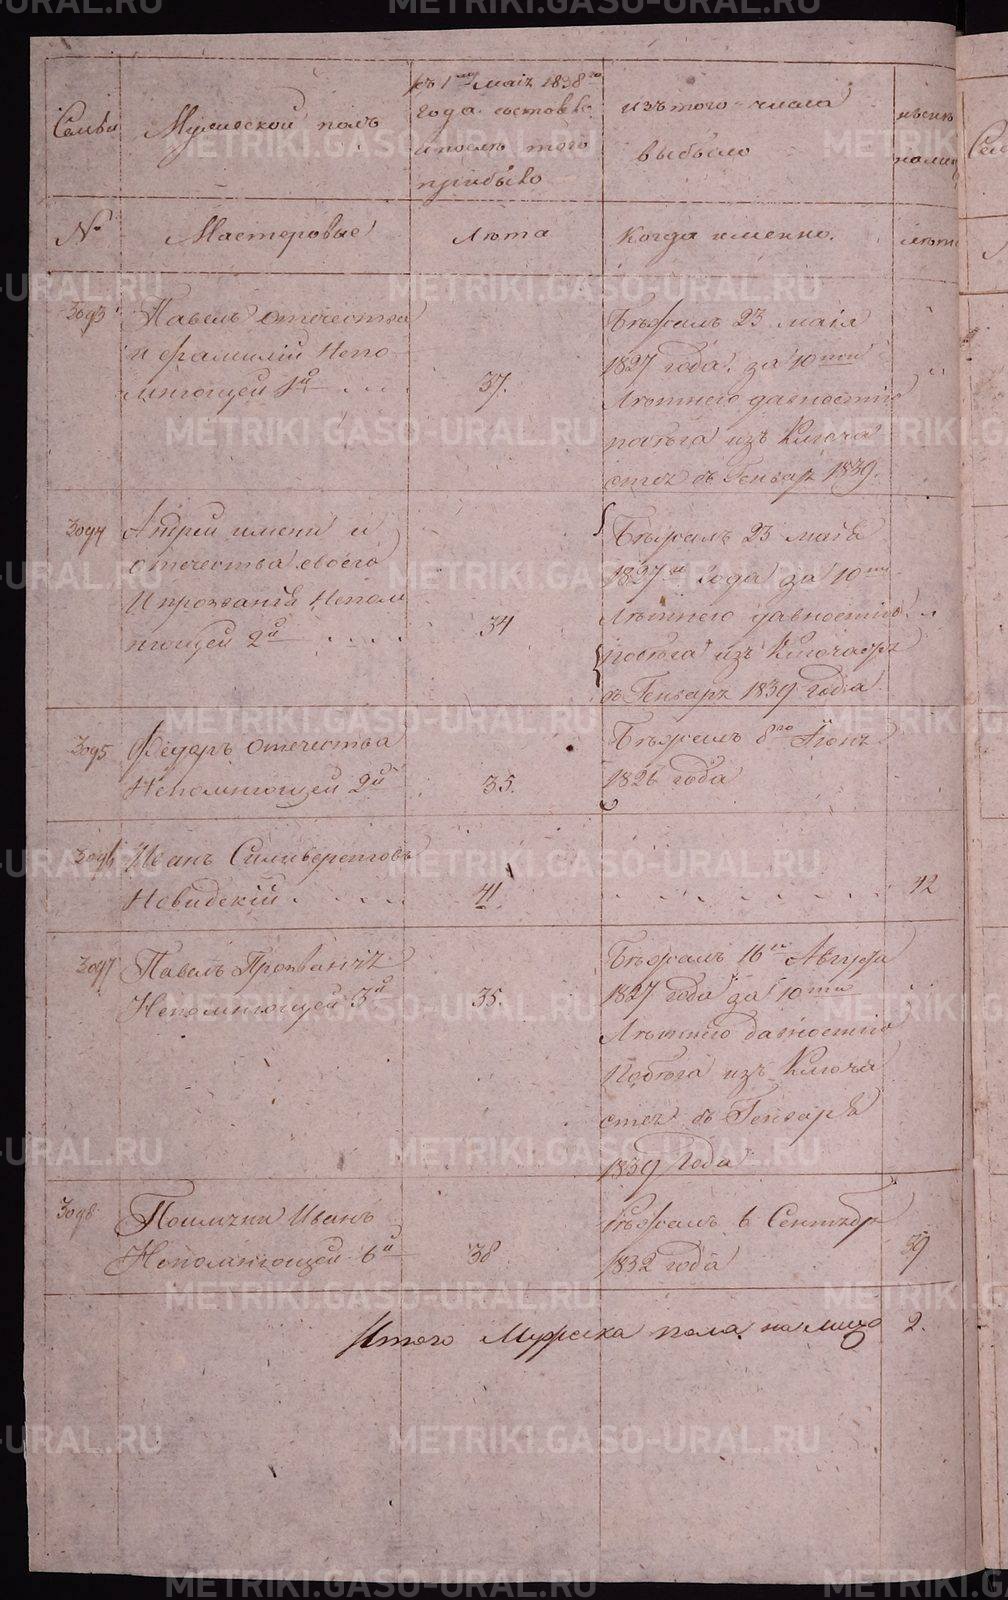 Семьи
Мужеской полъ
къ 1му маія 1838го
года состояло
и послѣ того
прибыло
изъ того числа
выбыло
нынѣ
налицо
№
Мастеровые
Лѣта
Когда именно.
лѣта
3093
Павелъ отечества
и фамиліи Непо-
мнющей 1й
37.
Бѣжалъ 23 маія
1827 года. за 10ти
Лѣтнею давностію
побѣга изъ Ключа
Генвар 1839.
3094
Андрей имени и
отечества своего
и прозванія Непом
нющей 2й
34
Бѣжалъ 23 маія
1827 года за 10ти
Лѣтнею давностію
побѣга изъ
въ Генварѣ 1839 года
3095
Ѳедоръ отечества
Непомнющей 2й
35.
Бѣжалъ 8го Іюнѣ
1826 года
3096
Иванъ Силиверстовъ
Новидскій
41
42
3097
Павелъ
Непомнющей 3й
35.
Бѣжалъ 16го Августа
1827 года за 10ти
Лѣтнею давностію
Побѣга изъ Ключа
въ Генварѣ
1839 Года
3098
Иванъ
Непомнющей 6й
38
Бѣжалъ 6 Сентябр
1832 года
39
Итого Мужска пола на лицо 2.
METRIKI.GASO-URAL.RU